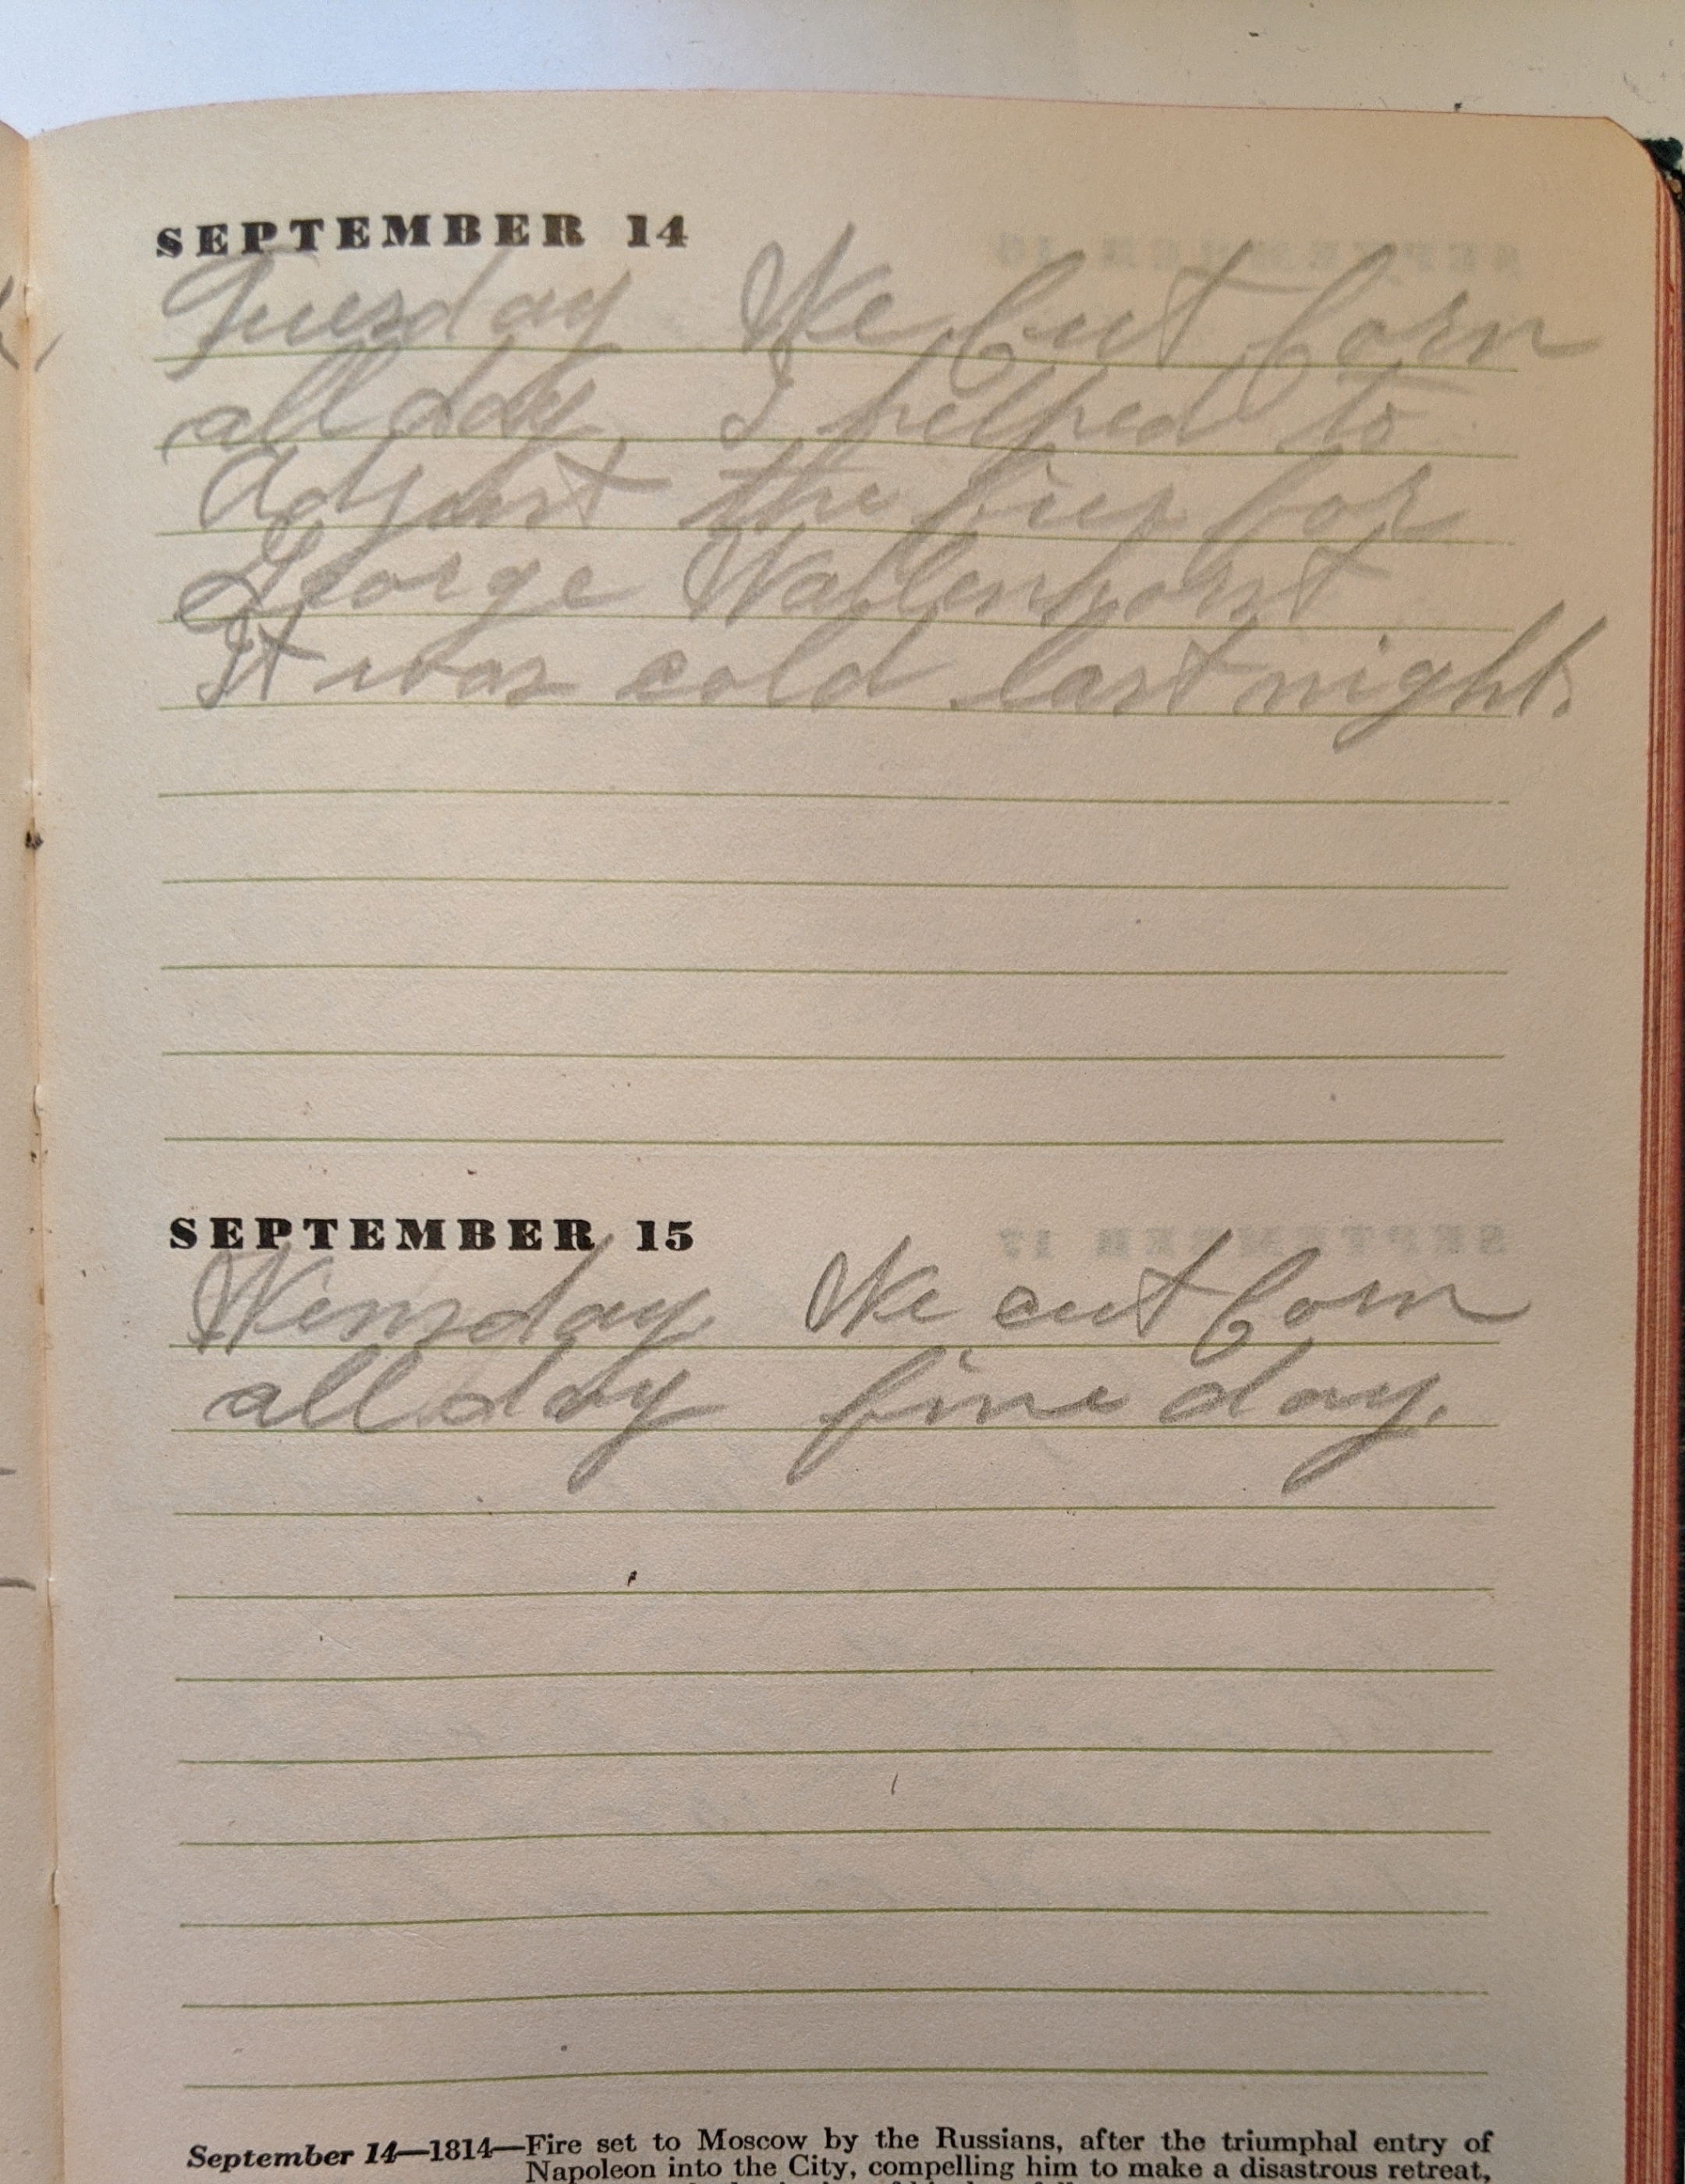 SEPTEMBER 14
Tuesday We Cut Corn
all day. I helped to
Adjust the fire for
George Wallenhorst
It was cold last night.
SEPTEMBER 15
Wensday. We cut Corn
all day fine day.
September 14—1814—Fire set to Moscow by the Russians, after the triumphal entry of
Napoleon into the City, compelling him to make a disastrous retreat,